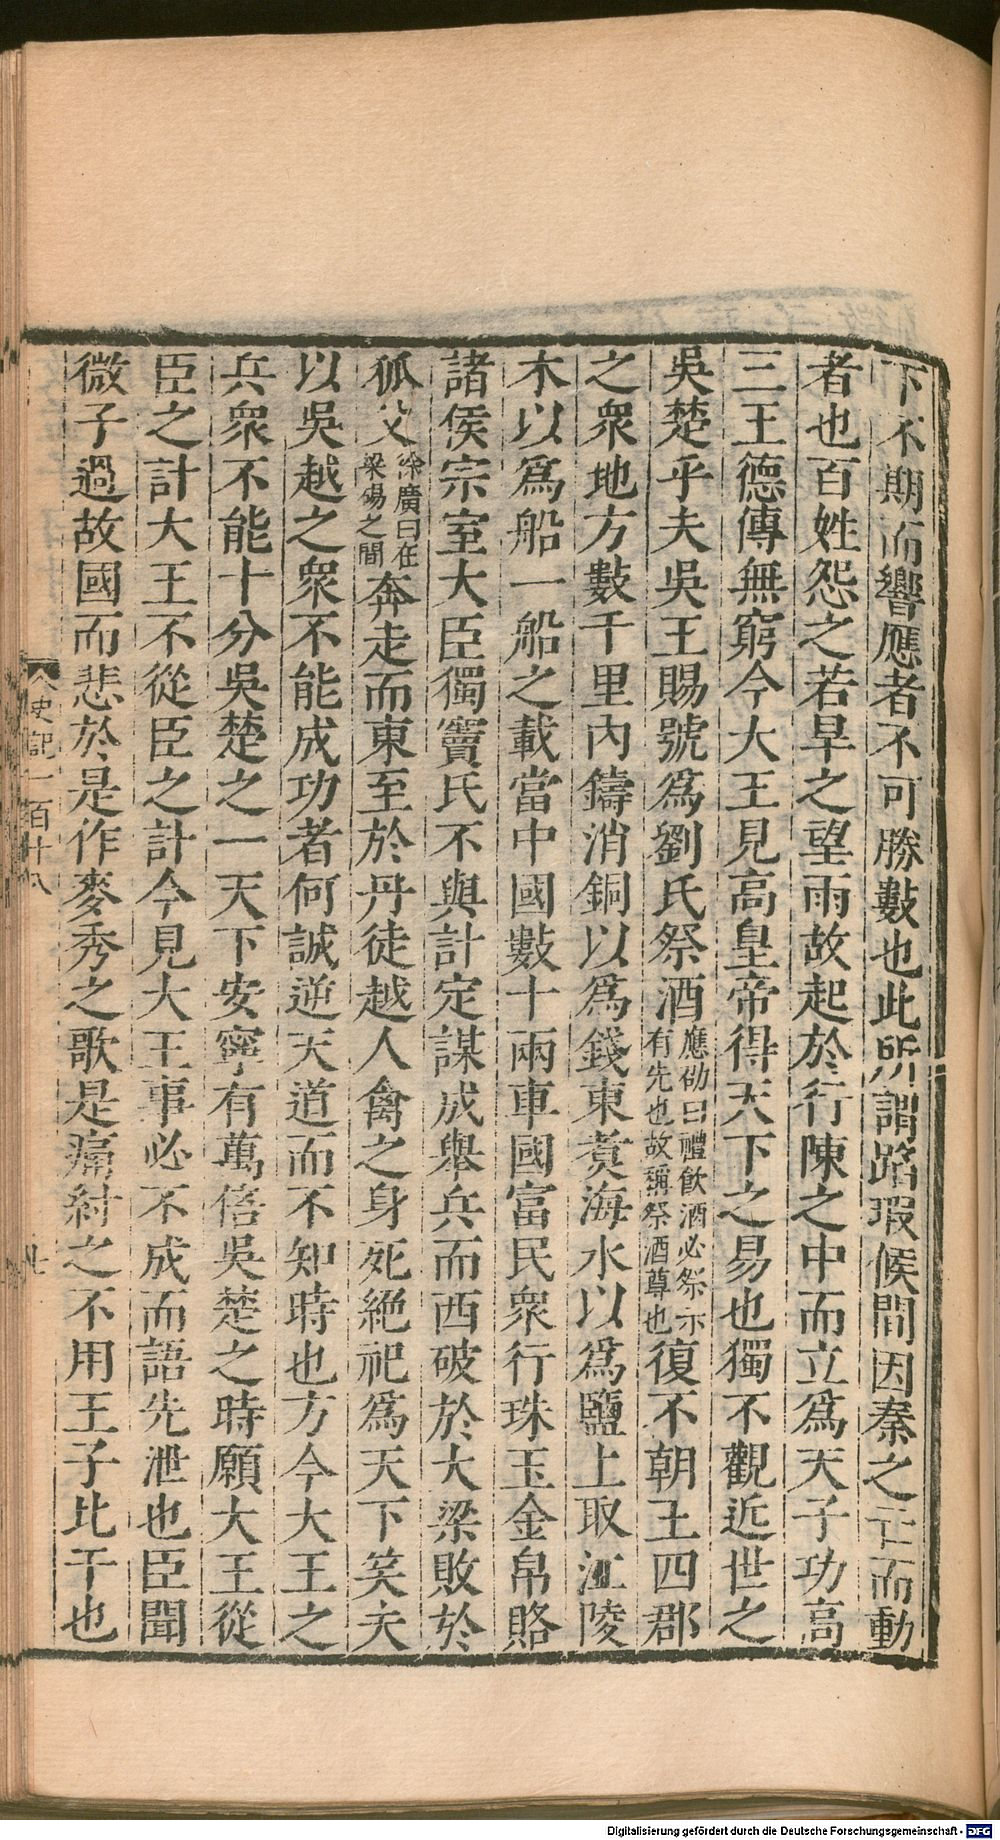 下不期而響應者不可勝數也此所謂蹈瑕候間因秦之亡而動
者也百姓怨之若旱之望雨故起於行陳之中而立爲天子功高
三王德傳無窮今大王見高皇帝得天下之易也獨不觀近世之
吳楚乎夫吳王賜號爲劉氏祭酒應劭曰禮飲酒必祭示有先也故稱祭酒尊也復不朝王四郡
之衆地方數千里內鑄消銅以爲錢東煑海水以爲鹽上取江陵
木以爲船一船之載當中國數十兩車國富民衆行珠玉金帛賂
諸侯宗室大臣獨竇氏不與計定謀成舉兵而西破於大梁敗於
狐父徐廣曰在梁碭之間奔走而東至於丹徒越人禽之身死絕祀爲天下笑夫
以吳越之衆不能成功者何誠逆天道而不知時也方今大王之
兵衆不能十分吳楚之一天下安寧有萬倍吳楚之時願大王從
臣之計大王不從臣之計今見大王事必不成而語先泄也臣聞
微子過故國而悲於是作麥秀之歌是痛紂之不用王子比干也
史記一百十八
七
Digitalisierung gefördert durch die Deutsche Forschungsgemeinschaft - DFG